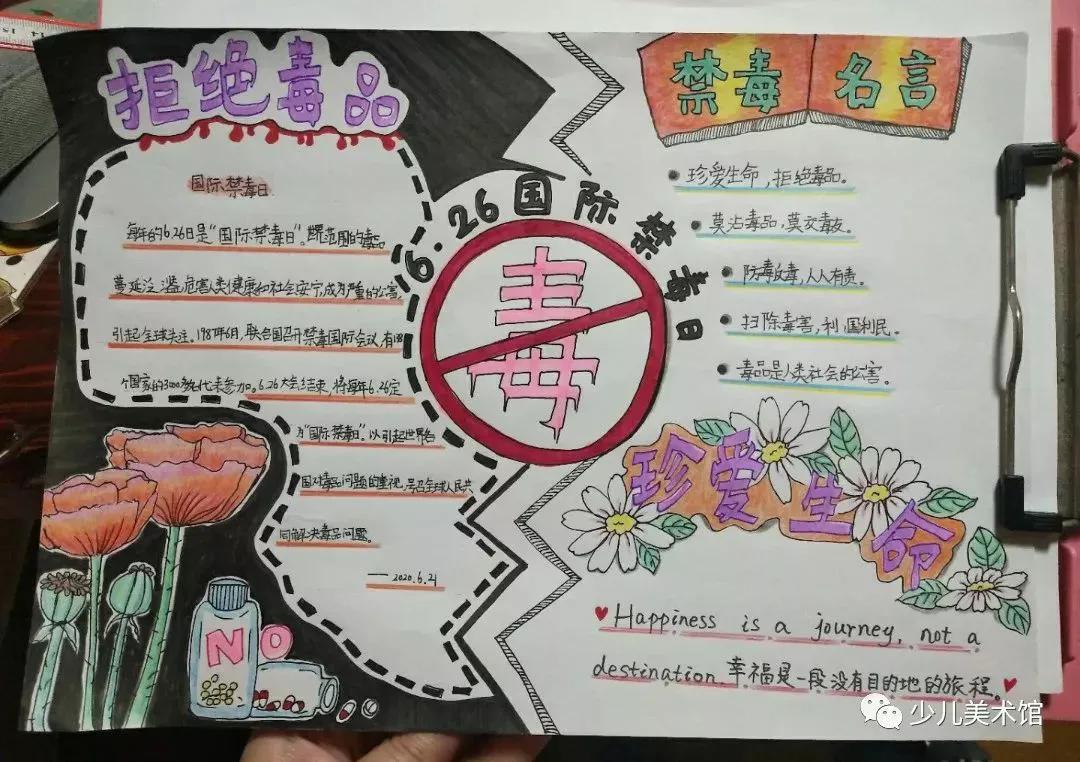 拒绝毒品
国际禁毒日
每年的6.26日是“国际禁毒日”。世界范围的毒品
蔓延泛滥,危害人类健康和社会安宁,成为严重的公害,
引起全球关注。1987年6月,联合国召开禁毒国际会议,有138
个国家的3000多名代表参加。6.26大会结束,将每年6.26定
为“国际禁毒日”。以引起世界各
国对毒品问题的重视,号召全球人民共
同解决毒品问题。
——2020.6.21
NO
6.26国际禁毒日
毒
禁毒名言
珍爱生命,拒绝毒品。
莫沾毒品,莫交毒友。
防毒反毒,人人有责。
扫除毒害,利国利民。
毒品是人类社会的公害。
珍爱生命
Happiness is a journey, not a
destination.幸福是一段没有目的地的旅程。
少儿美术馆